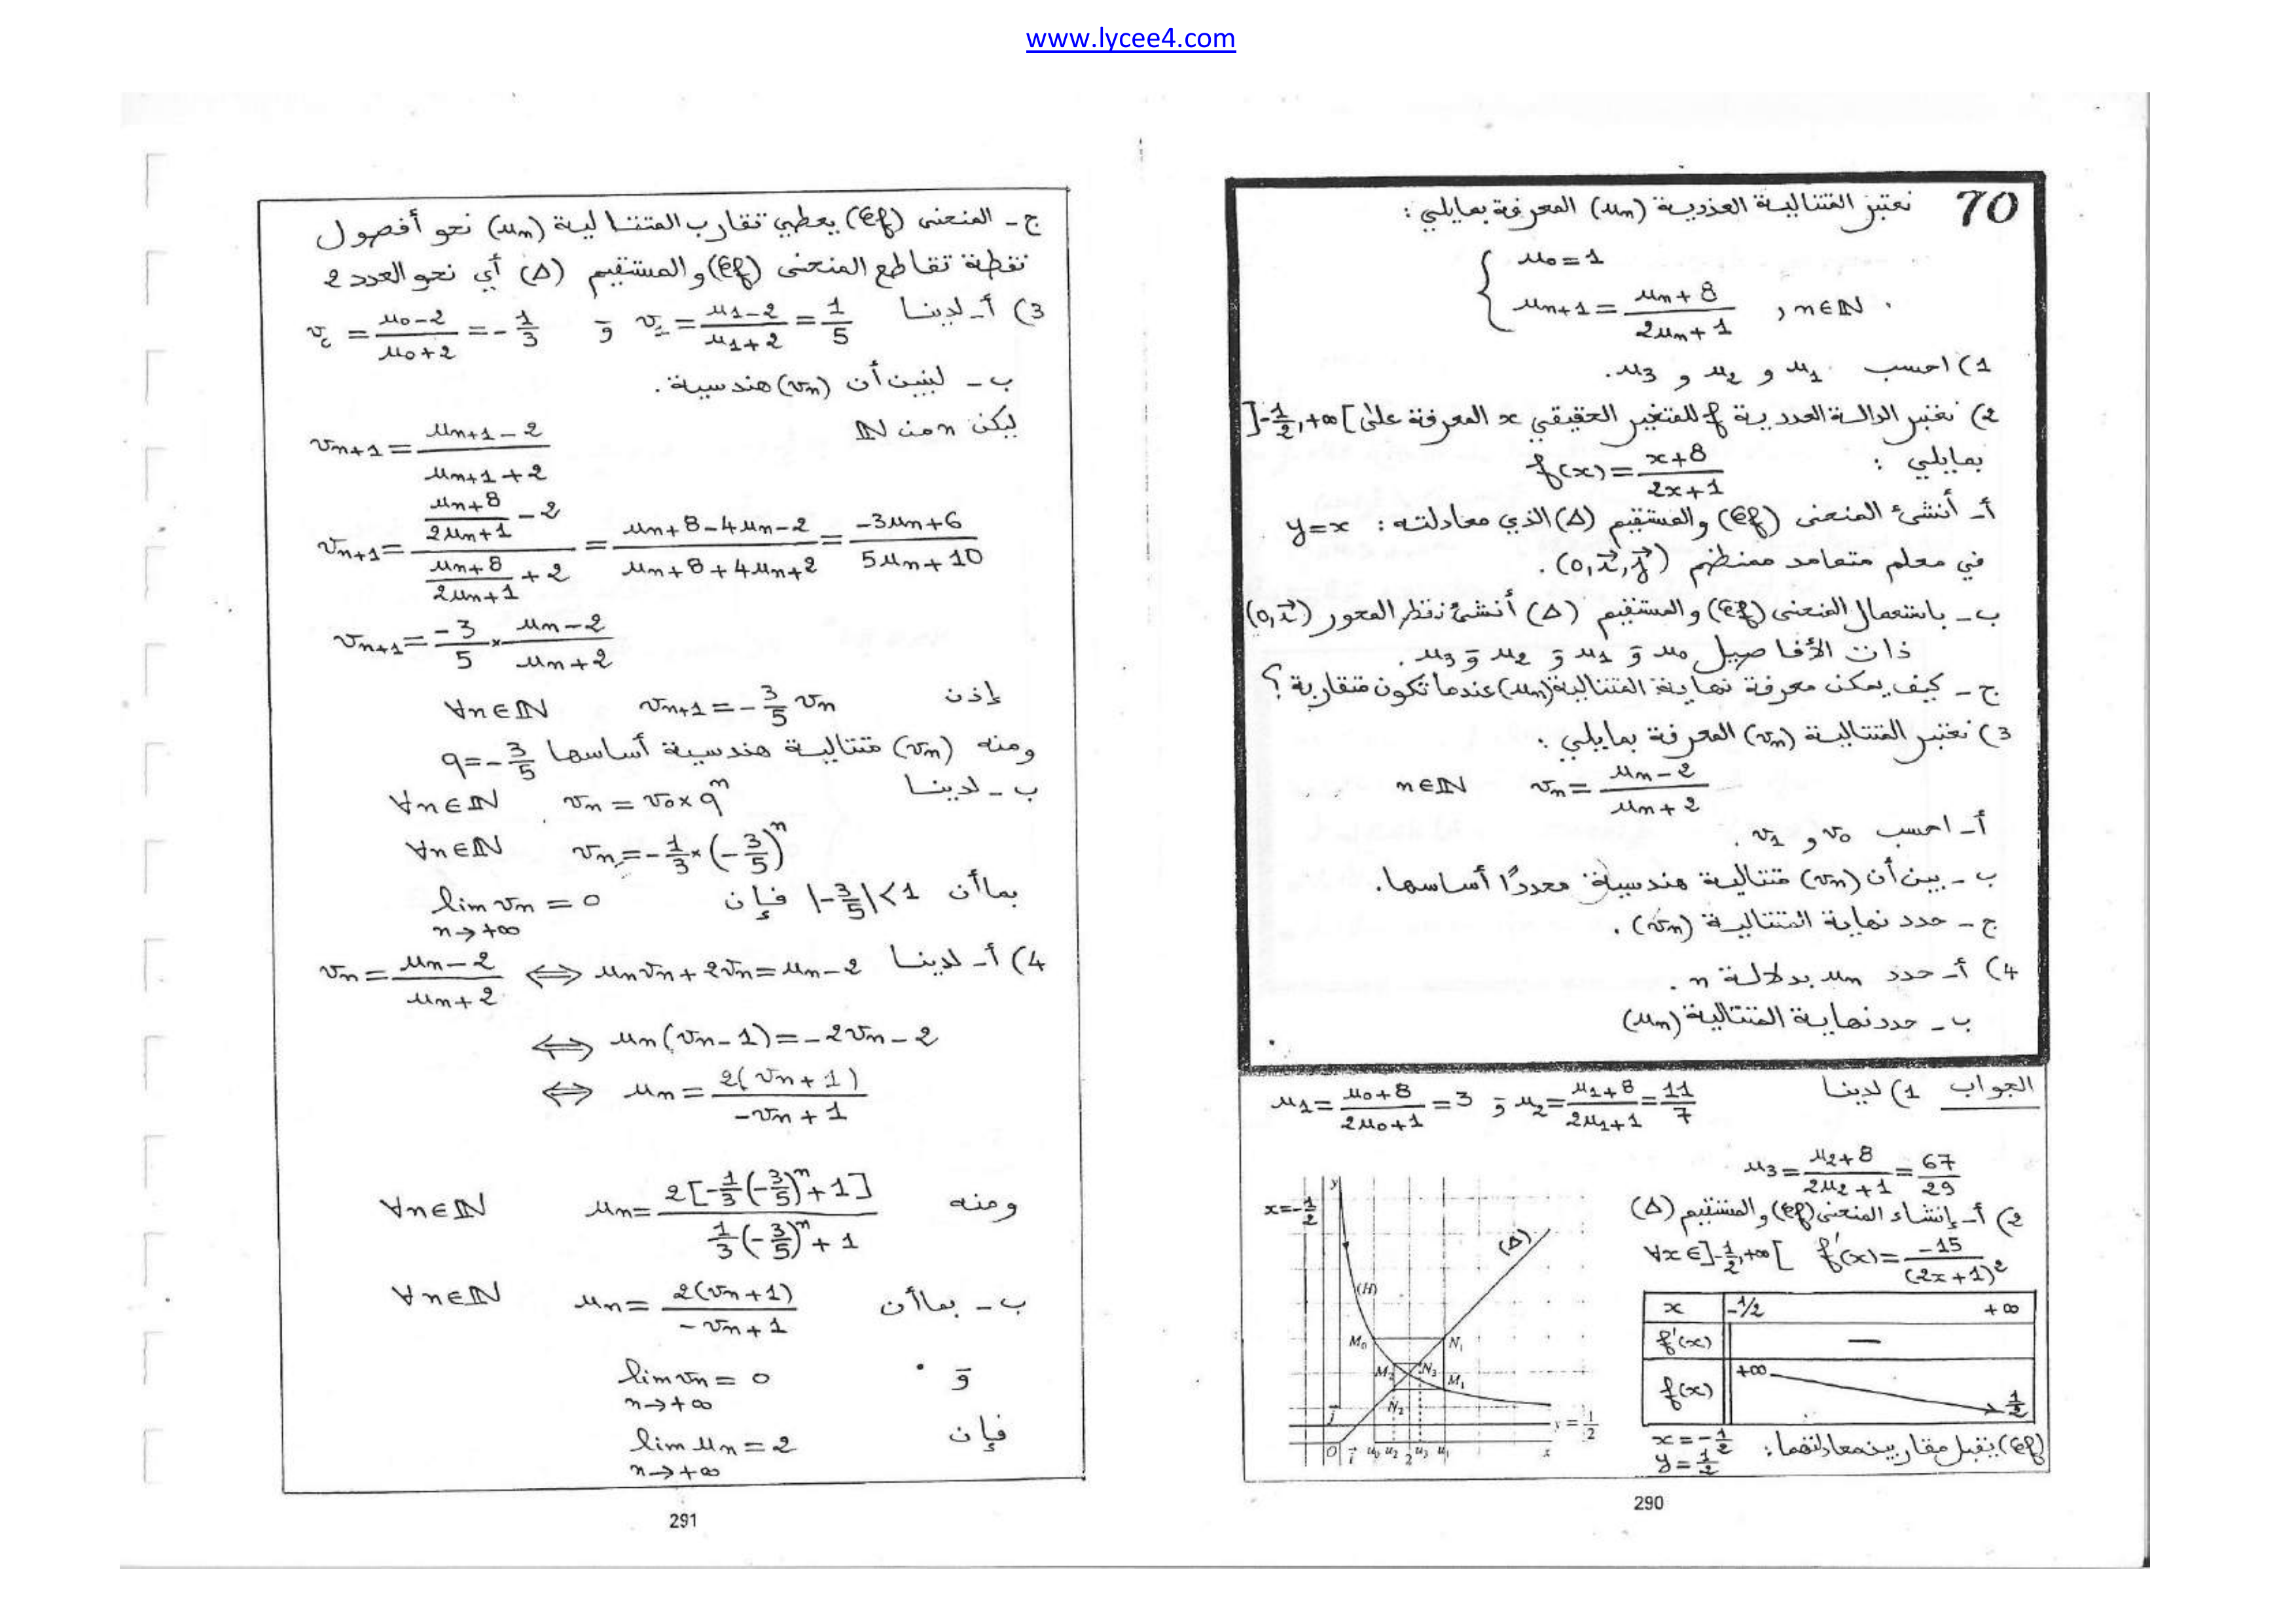 www.lycee4.com
70 نعتبر المتتالية العددية (un) المعرفة بمايلي :
u0 = 1
un+1 = (un + 8)/(2un + 1) , n∈ℕ .
1) احسب u1 و u2 و u3.
2) نعتبر الدالة العددية f للمتغير الحقيقي x المعرفة على ]-1/2, +∞[
بمايلي : f(x) = (x+8)/(2x+1)
أ- أنشئ المنحنى (Cf) والمستقيم (Δ) الذي معادلته : y=x
في معلم متعامد ممنظم (o, i, j).
ب- باستعمال المنحنى (Cf) والمستقيم (Δ) أنشئ نقط المحور (o, i)
ذات الأفاصيل u0 و u1 و u2 و u3 .
ج- كيف يمكن معرفة نهاية المتتالية (un) عندما تكون متقاربة ؟
3) نعتبر المتتالية (vn) المعرفة بمايلي :
vn = (un - 2)/(un + 2) n∈ℕ
أ- احسب v0 و v1 .
ب- بين أن (vn) متتالية هندسية محددًا أساسها.
ج- حدد نهاية المتتالية (vn) .
4) أ- حدد un بدلالة n .
ب- حدد نهاية المتتالية (un)
الجواب 1) لدينا u1 = (u0+8)/(2u0+1) = 3 و u2 = (u1+8)/(2u1+1) = 11/7
u3 = (u2+8)/(2u2+1) = 67/29
2) أ- إنشاء المنحنى (Cf) والمستقيم (Δ)
∀x∈]-1/2, +∞[ f'(x) = -15/(2x+1)²
x -1/2 +∞
f'(x) −
f(x) +∞ 1/2
(Cf) يقبل مقاربين معادلتهما : x = -1/2
y = 1/2
x=-1/2
y
(Δ)
(H)
M0 N1
M2 N3
M1
N2
j
y = 1/2
O i u0 u2 2 u3 u1 x
290
ج- المنحنى (Cf) يعطي تقارب المتتالية (un) نحو أفصول
نقطة تقاطع المنحنى (Cf) والمستقيم (Δ) أي نحو العدد 2
3) أ- لدينا v1 = (u1-2)/(u1+2) = 1/5 و v0 = (u0-2)/(u0+2) = -1/3
ب- لنبين أن (vn) هندسية .
ليكن n من ℕ
vn+1 = (un+1 - 2)/(un+1 + 2)
vn+1 = ((un+8)/(2un+1) - 2)/((un+8)/(2un+1) + 2) = (un+8-4un-2)/(un+8+4un+2) = (-3un+6)/(5un+10)
vn+1 = -3/5 × (un-2)/(un+2)
إذن vn+1 = -3/5 vn ∀n∈ℕ
ومنه (vn) متتالية هندسية أساسها q = -3/5
ب- لدينا vn = v0 × qⁿ ∀n∈ℕ
vn = -1/3 × (-3/5)ⁿ ∀n∈ℕ
بما أن |-3/5| < 1 فإن lim vn = 0
n→+∞
4) أ- لدينا vn = (un-2)/(un+2) ⟺ unvn + 2vn = un - 2
⟺ un(vn - 1) = -2vn - 2
⟺ un = 2(vn + 1)/(-vn + 1)
ومنه un = 2[-1/3(-3/5)ⁿ + 1]/(1/3(-3/5)ⁿ + 1) ∀n∈ℕ
ب- بما أن un = 2(vn+1)/(-vn+1) ∀n∈ℕ
و lim vn = 0
n→+∞
فإن lim un = 2
n→+∞
291